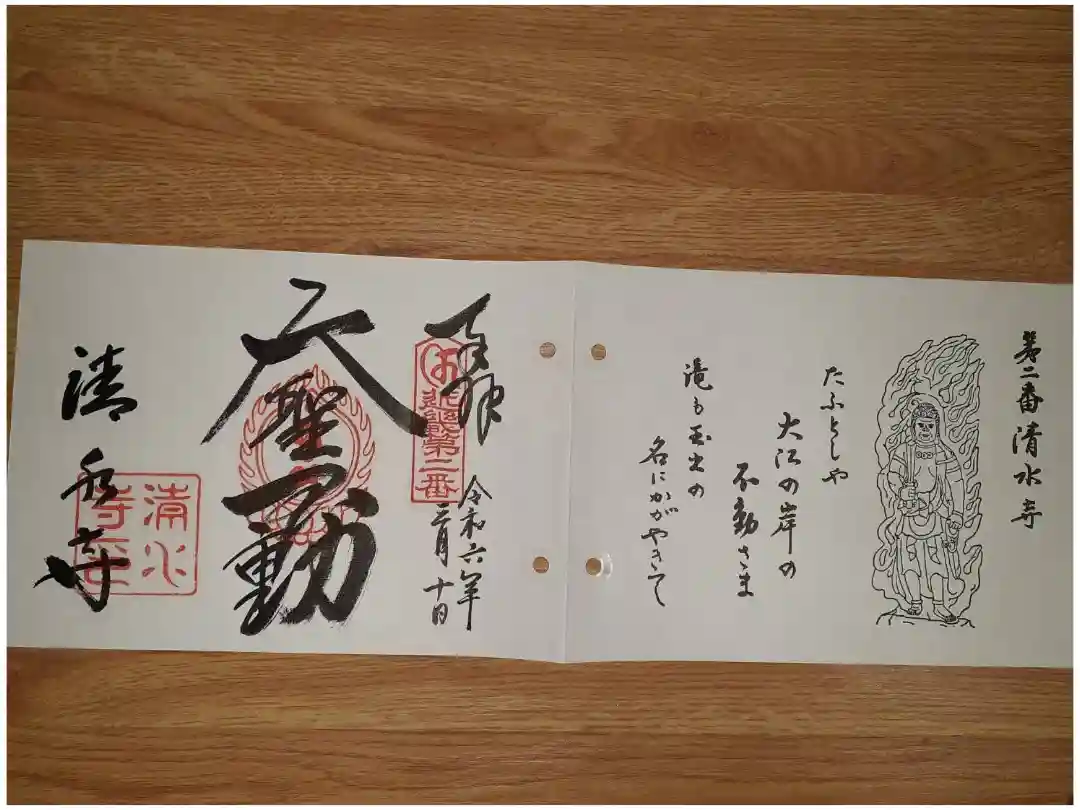 第二番清水寺
たふとしや
大江の岸の
不動さま
滝も玉出の
名にかがやきて
奉拝
近畿第二番
令和六年
三月十日
大聖不動
清水寺
清水寺印